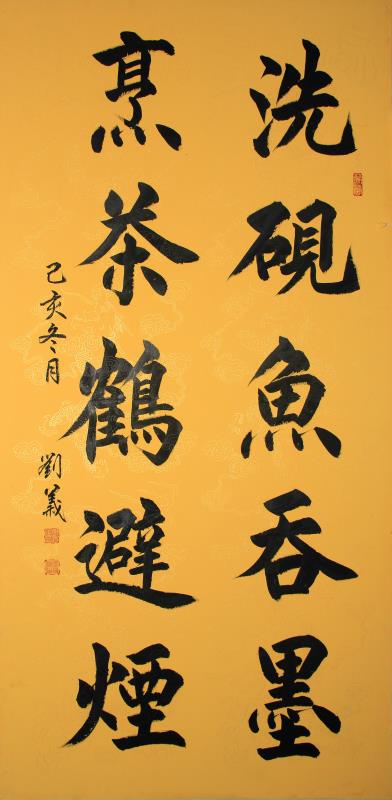 洗硯魚吞墨
烹茶鶴避煙
己亥冬月
劉義